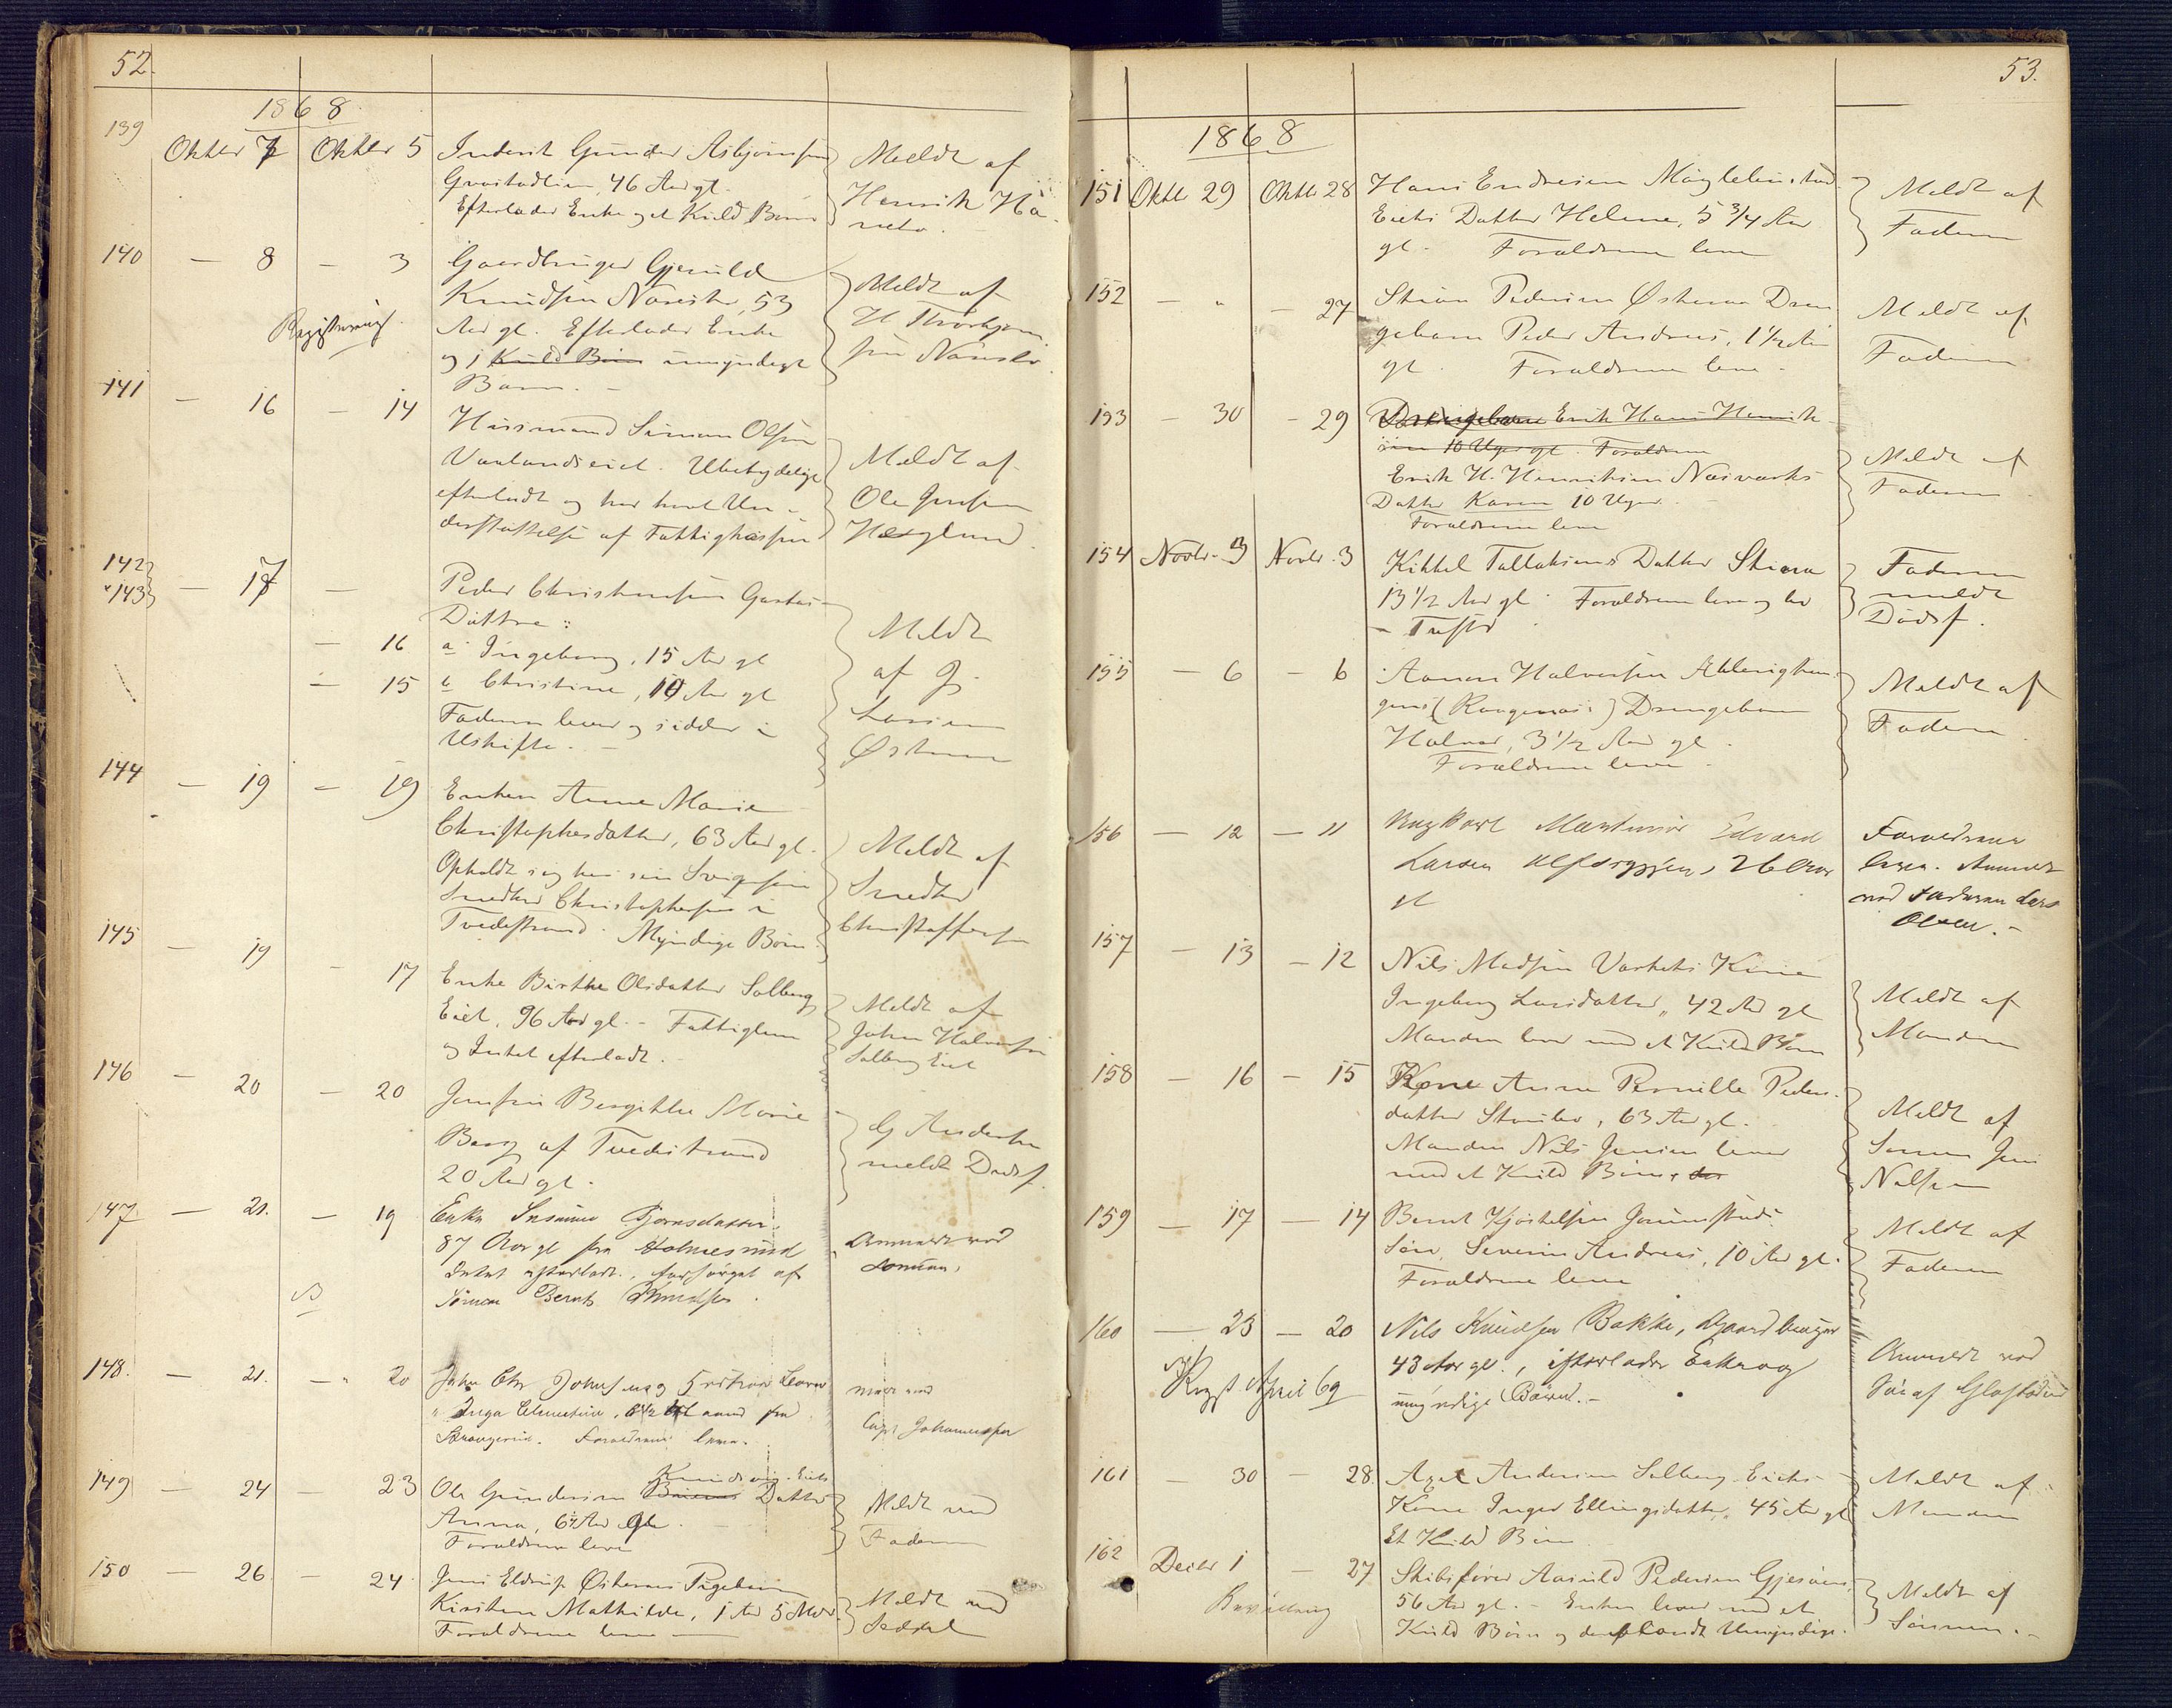 52.
1868
139 Oktbr 7 Oktbr 5 Inderst Gunder Asbjørnsen
46 Aar gl.
Efterlader Enke og et Kuld Børn
Meldt af
Henrik
140 — 8 — 3 Gaardbruger Gjeruld
Knudsen Næsebø, 53
Aar gl. Efterlader Enke
og 1 Kuld Børn umyndigt
Barn. —
Registrering.
Meldt af
141 — 16 — 14 Huusmand Simon Olsen
Vaalandseiet. Ubetydelige
efterladt og har havt Un-
derstøttelse af Fattigkassen
Meldt af
Ole Jensen
Hæsglund.
142
143 — 17 —
Peder Christensen
Døttre:
— 16 a Ingeborg, 15 Aar gl
— 15 b Christine, 10 Aar gl
Faderen lever og sidder i
Uskifte. —
Meldt
af
Larsen
Østeraa
144 — 19 — 19 Enken Anne Marie
Christophersdatter, 63 Aar gl.
Opholdt sig hos sin Svigersøn
Christophersen i
Tvedestrand. Myndige Børn.
Meldt af
Christoffersen
145 — 19 — 17 Enke Birthe Olsdatter Solberg
Eiet, 96 Aar gl. - Fattiglem
og Intet efterladt. —
Meldt af
John Halvorsen
Solberg Eiet
146 — 20 — 20 Jomfru Bergitthe Marie
Berg af Tvedestrand
20 Aar gl.
G Andersen
meldt Dødsf.
147 — 21. — 19 Enke Susanne Bjørnsdatter
87 Aar gl fra Holmesund
Intet efterladt., forsørget af
Sønnen Bernt Knudsen.
Anmeldt ved
Sønnen.
148. — 21. — 20 John Chr Johnsen
Inga Clementine, 6 1/2 fra
Foraldrene leve.
Capt Johannessen
149 — 24 — 23 Ole Gundersen Eiets Datter
Anna, 6 Aar gl.
Foraldrene leve
Meldt ved
Faderen
150 — 26 — 24 Jens Eldrup Østeraas Pigebarn
Kirstine Mathilde, 1 Aar 5 Mdr.
Foraldrene leve —
Meldt ved
Seddel
53.
1868
151 Oktb 29 Oktb 28 Hans Endresen
Eiets Datter Helene, 5 3/4 Aar
gl. Foraldrene leve
Meldt af
Faderen
152 — " — 27 Stian Pedersen Østeraa Dren-
gebarn Peder Andreas, 1 1/2 Aar
gl. Foraldrene leve -
Meldt af
Faderen
153 — 30 — 29 Drengebarn Erik Hans Henrik-
sen 10 Uger gl. Foraldrene
Erik H. Henriksen Næsværks
Datter Karen 10 Uger. —
Foraldrene leve
Meldt af
Faderen
154 Novbr. 3 Novbr. 3 Kittel Tallaksens Datter Stina
13 1/2 Aar gl. Foraldrene leve og bo
Faderen
meldt
Dødsf.
155 — 6 — 6 Aanon Halvorsen
Drengebarn
Halvor, 3 1/2 Aar gl.
Foraldrene leve
Meldt af
Faderen.
156 — 12 — 11 Ungkarl Martinius Edvard
Larsen 26 Aar
gl
Foraldrene
leven. Anmeldt
ved Faderen Lars
Olsen. -
157 — 13 — 12 Nils Madsen Kone
Ingeborg Larsdatter, 42 Aar gl
Manden lever med et Kuld Børn
Meldt af
Manden
158 — 16 — 15 Kone Anne Pernille Peders-
datter 63 Aar gl.
Manden Nils Jensen lever
med et Kuld Børn
Meldt af
Sønnen Jens
Nilsen
159 — 17 — 14 Bernt Kjøstelsen
Søn, Severin Andreas, 10 Aar gl.
Foraldrene leve
Meldt af
Faderen
160 — 23 — 20 Nils Knudsen Bakke, Gaardbruger
43 Aar gl., efterlader Enke og
umyndige Børn. -
Regst April 69
Anmeldt ved
161 — 30 — 28. Axel Andersen Solberg Eiets
Kone Inger Ellingsdatter, 45 Aar gl
Et Kuld Børn
Meldt af
Manden
162 Decbr 1 — 27 Skibsfører Aasuld Pedersen
56 Aar gl. - Enken lever med et
Kuld Børn og deriblandt Umyndige.
Bevilling
Meldt af
Sønnen. -